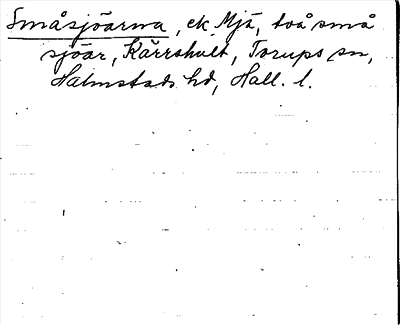 Småsjöarna, ek. Mjä, två små
sjöar, Kärrshult, Torups sn,
Halmstads hd, Hall. l.